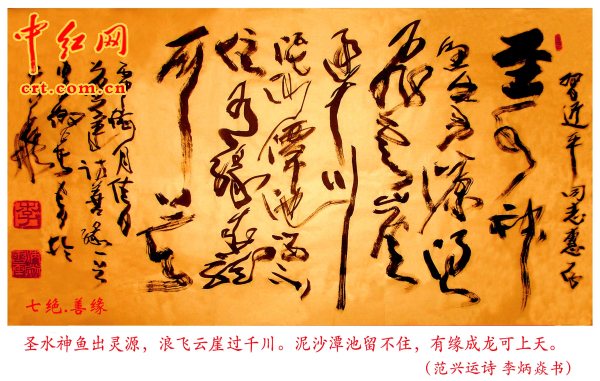 中红网
crt.com.cn
習近平同志惠存
圣水神
鱼出灵源浪
飛雲崖
過千川
泥沙潭池留不
住有缘成龙
可上天
七绝.善缘
圣水神鱼出灵源，浪飞云崖过千川。泥沙潭池留不住，有缘成龙可上天。
（范兴运诗 李炳焱书）